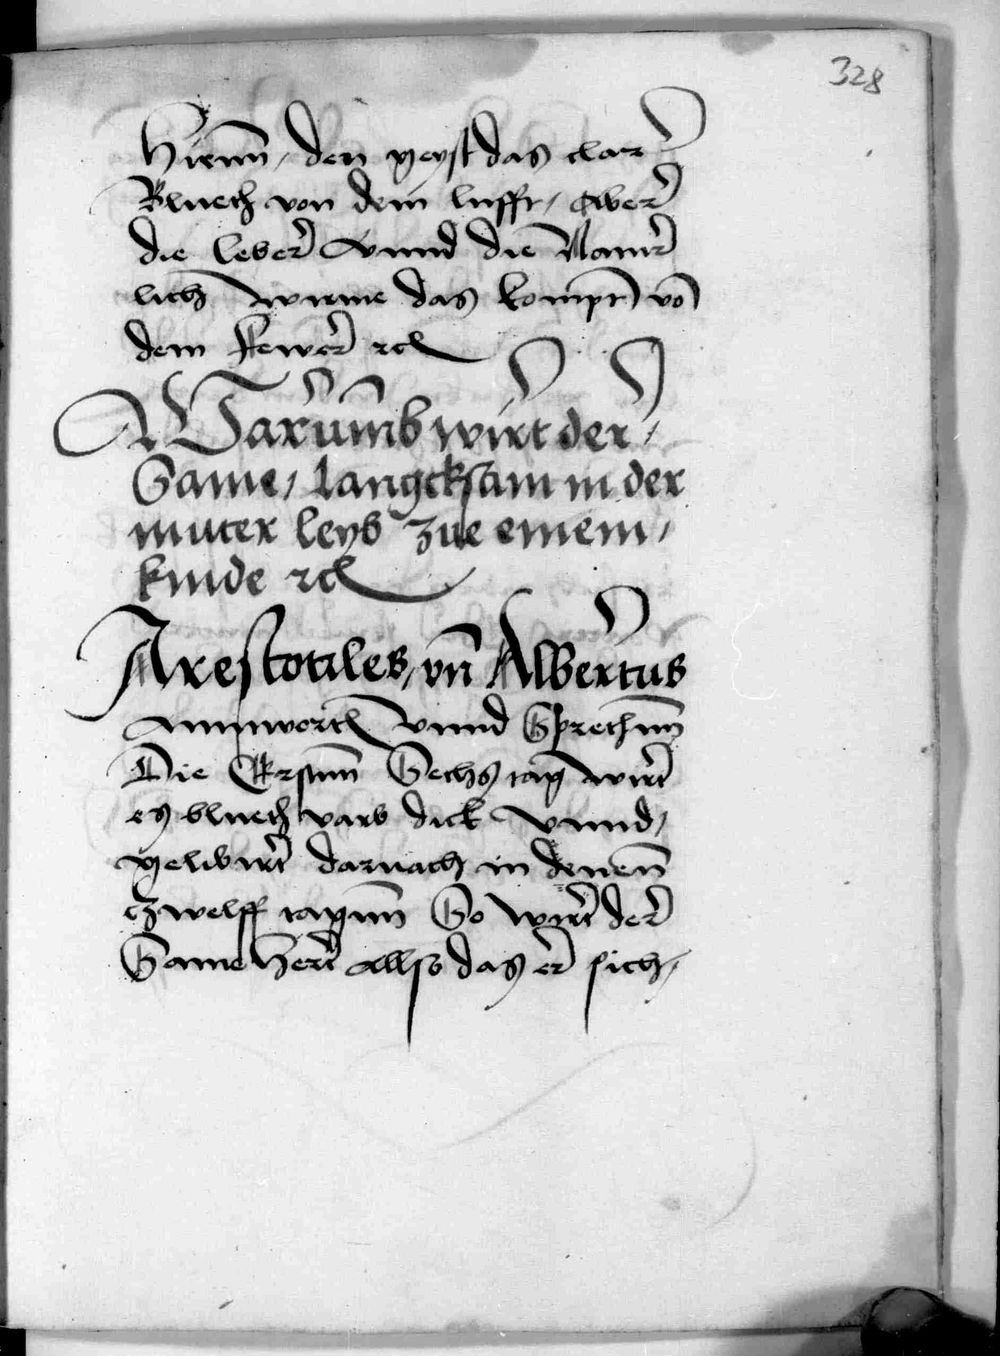 328
Hirnn / den geyst das clar
Bluech von dem lufft / Aber
die leber vnnd die Natur
lich wirme das kompt vō
dem fewer rc
Warumb wirt der /
Same / langcksam in der
muter leyb zue einem /
kinde rc
Arestotiles / vn̄ Albertus
Annworth vnnd Sprechnn
Die Erstnn Sechs tag wirt
es bluech varb dick vnnd /
gelibert darnach in denen
zwelff tagnn So wirt der
Same hert allso das er sich /